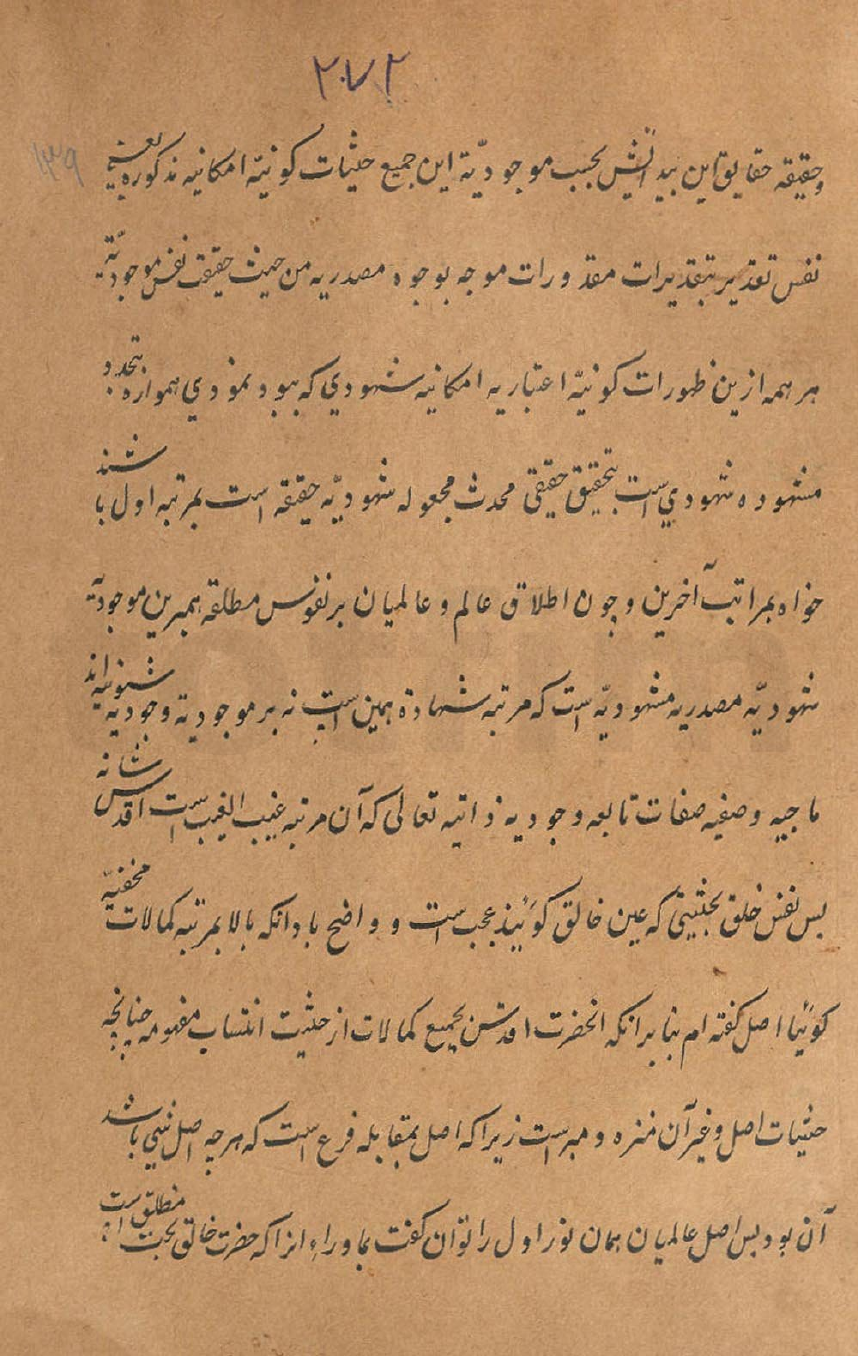 ۲۰۷۲
۱۳۹
وحقیقه حقایق این بید انیش بحسب موجودیّة این جمیع حیثیات کونیّة امکانیه مذکوره یعنی
نفس تعذیر بتقدیرات مقدورات موجه بوجوه مصدریه من حیث حقیقت نفس موجودیّة
هر همه ازین ظهورات کونیّة اعتباریه امکانیه شهودي که ببود نمودي همواره بتجدد
مشهوده شهودي است بتحقیق حقیقی محدث مجعوله شهودیّه حقیقه است بمرتبه اول باشند
خواه بمراتب آخرین و چون اطلاق عالم و عالمیان بر نفوس مطلقه همبرین موجودیة
شهودیّه مصدریه مشهودیّه است که مرتبه شهادة همین است نه بر موجودیة وجودیه شئونیه اند
ما جیه وصفیه صفات تابعه وجودیه ذاتیه تعالی که آن مرتبه غیب الغیب است اقدس شانه
بس نفس خلق بحیثیتی که عین خالق کوئیند عجب است و واضح باد انکه بالا بمرتبه کمالات مخفیّه
کوئیا اصل کفته ام بنا بر انکه انحضرت اقدس بجمیع کمالات از حیثیت انتساب مفهومه چنانچه
حیثیات اصل و غیر آن منزه و مبراست زیرا که اصل بمقابله فرع است که هرچه اصل نیي باشد
آن بود بس اصل عالمیان همان نور اول را توان کفت بما وراء انرا که حضرت خالق بحت منطلق است